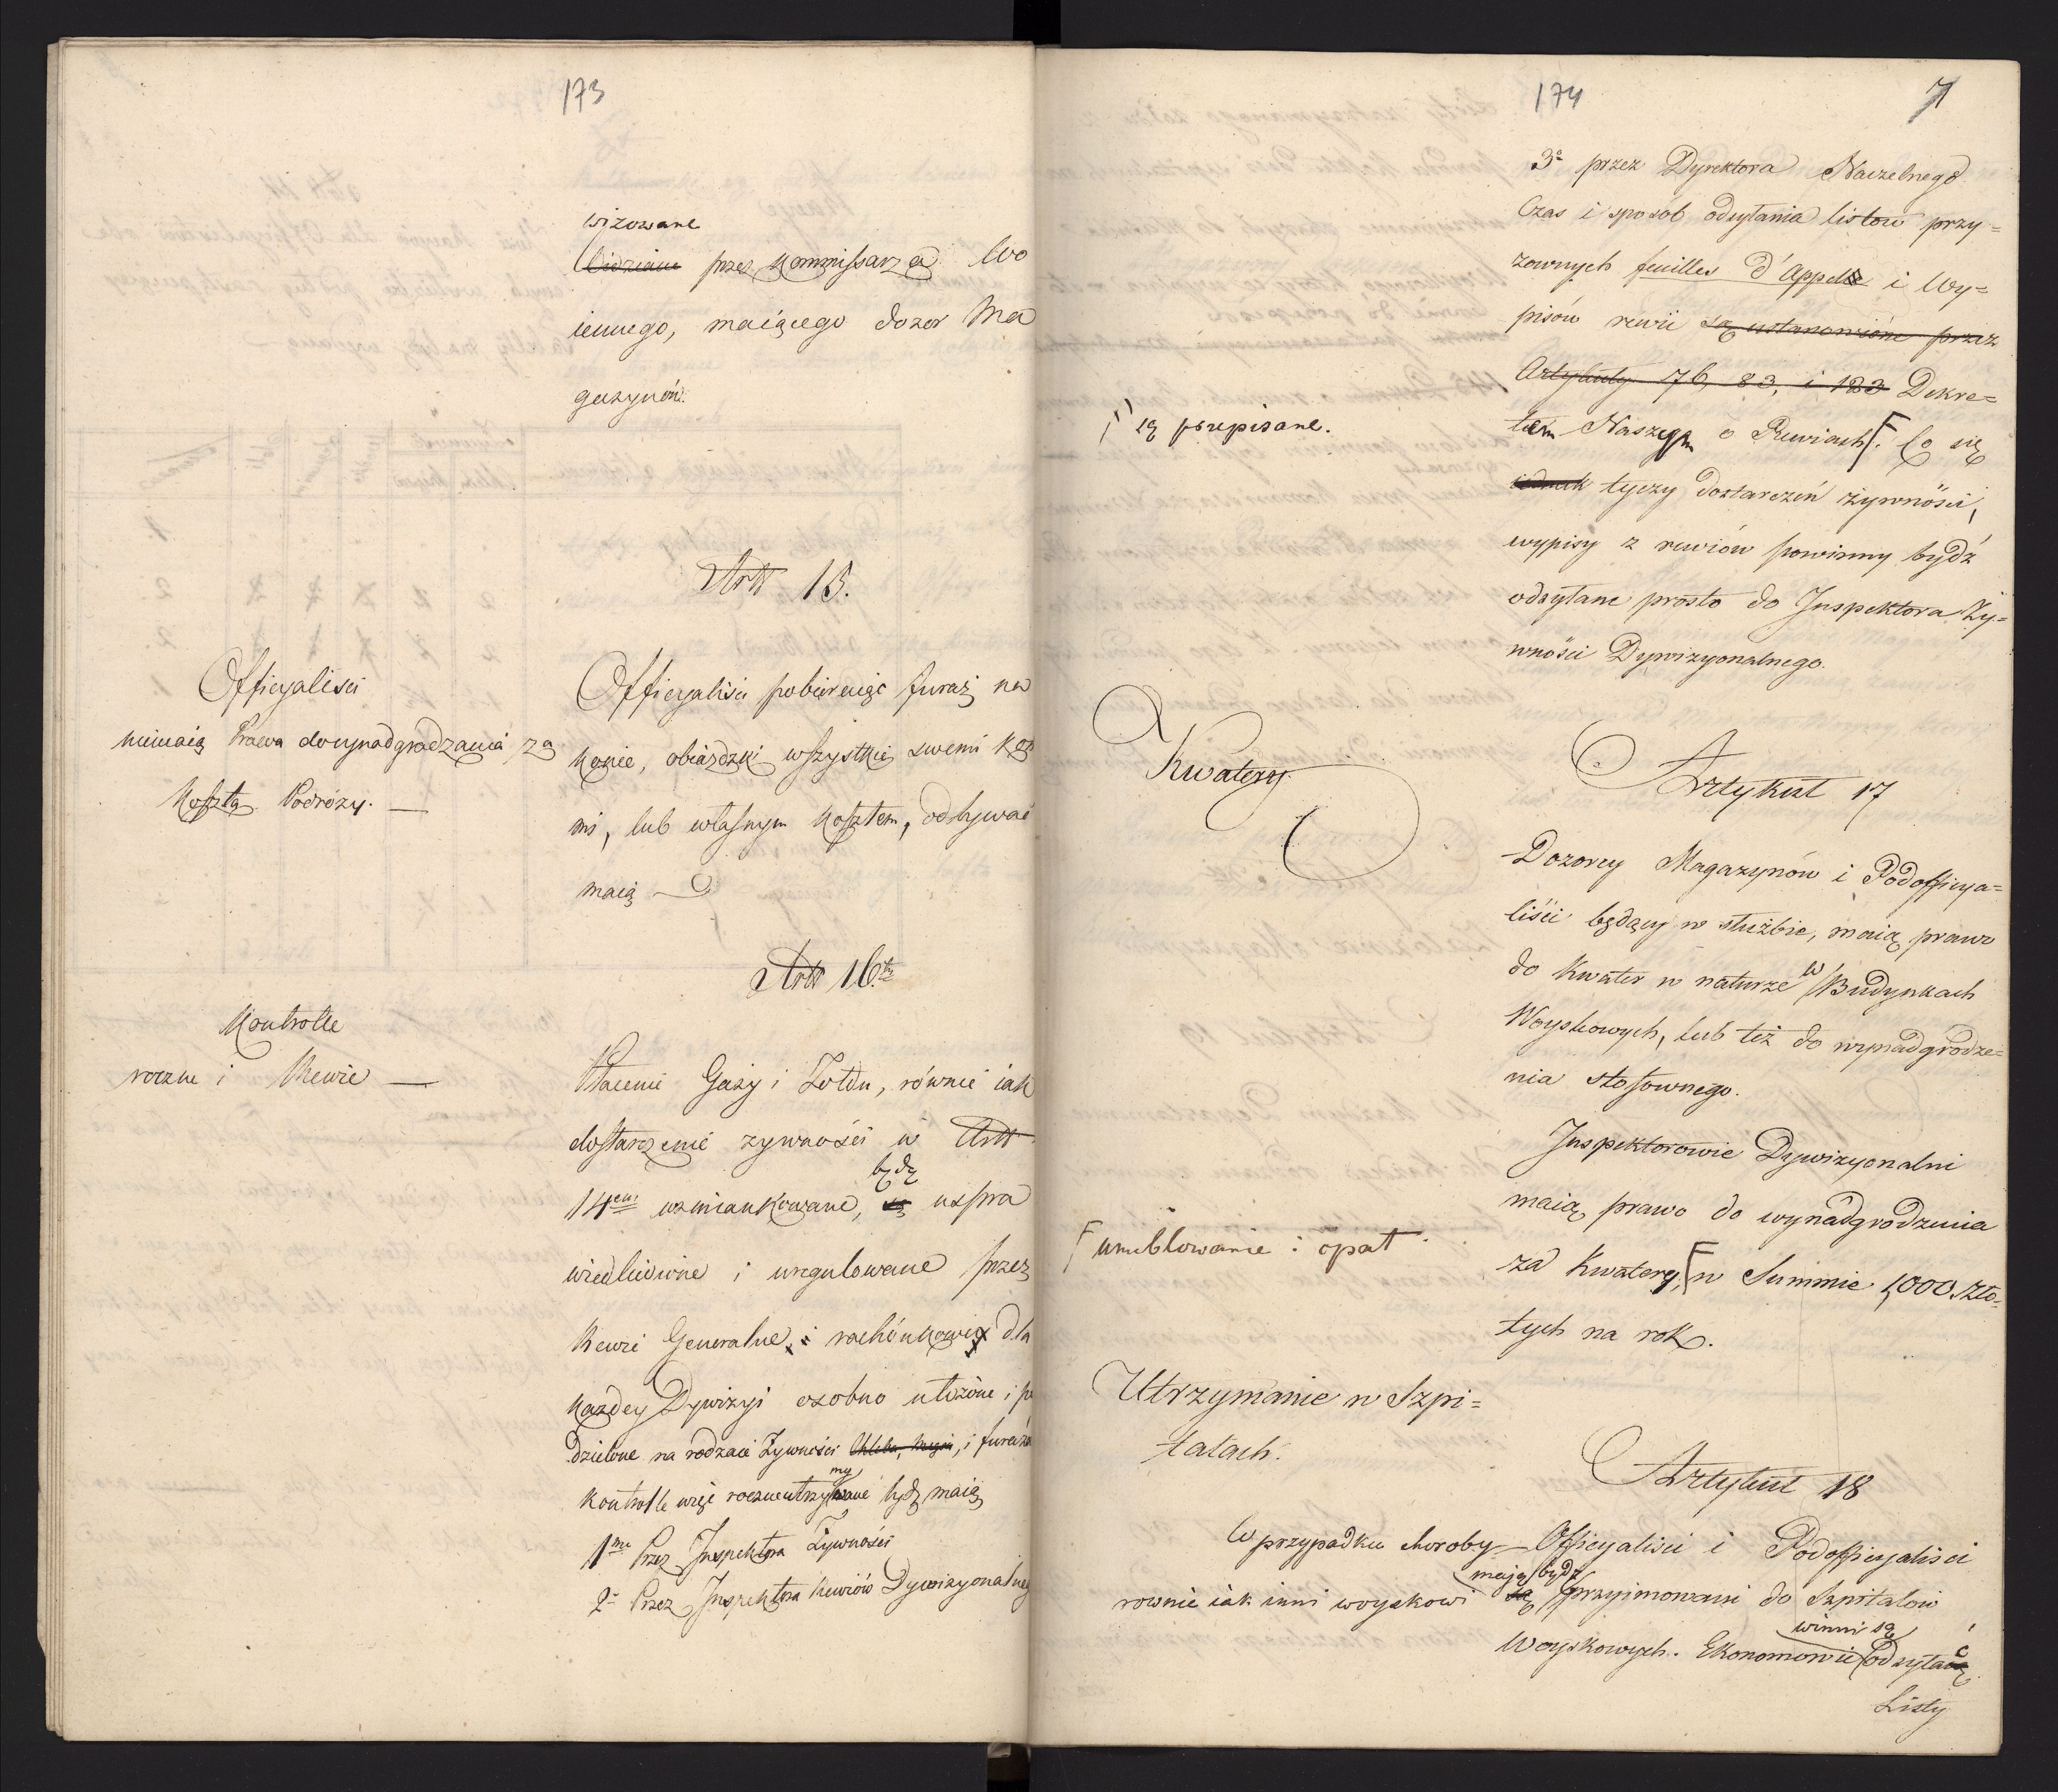 173
wizowane
Widziane przez Kommissarza Wo
iennego, maiącego dozor Ma
gazynów.
Art 15.
Officyalisci
niemaią Prawa do wynadgradzania za
koszta Podróży. —
Officyaliści pobieraiąc furaż na
konie, obiazdzki wszystkie swemi koń
mi, lub własnym kosztem, odbywać
maią
Art 16.
Kontrolle
roczne i Rewie —
Płacenie Gaży i Żołdu, równie iak
dostarczenie zywności w Art
będą
14em wzmiankowane, są uspra
wiedliwione i uregulowane przez
Rewie Generalne i rachunkowe dla
każdey Dywizyi osobno ułożone i po
dzielone na rodzaie Żywności Chleba, Mięsa, i furażu
my
kontrolle więc roczne utrzymywane bydź maią
1me Przez Inspektora Żywności
2o Przez Inspektora Rewiów Dywizyonalnego
174
7
3o przez Dyrektora Naczelnego
Czas i sposób odsyłania listów przy=
zownych feuilles d'Appel i Wy=
pisów rewii są ustanowione przez
Artykuły 76, 83, i 183 Dekre=
są przepisane.
tem Naszym o Rewiach. Co się
iednak tyczy dostarczeń żywności,
wypisy z rewiów powinny bydź
odsyłane prosto do Inspektora Ży=
wności Dywizyonalnego.
Kwatery
Artykuł 17
Dozorcy Magazynów i Podofficya=
liści będący w służbie, maią prawo
do Kwater w naturze w Budynkach
Woyskowych, lub też do wynadgrodze=
nia stosownego.
Inspektorowie Dywizyonalni
maią prawo do wynadgrodzenia
umeblowanie i opał
za Kwatery, w Summie 1,000 Zło=
tych na rok.
Utrzymanie w Szpi=
talach.
Artykuł 18
W przypadku choroby Officyalisci i Podofficyalisci
maią bydź
rownie iak inni woyskowi są przyimowani do Szpitalow
winni są
Woyskowych. Ekonomowie odsyłać
Listy